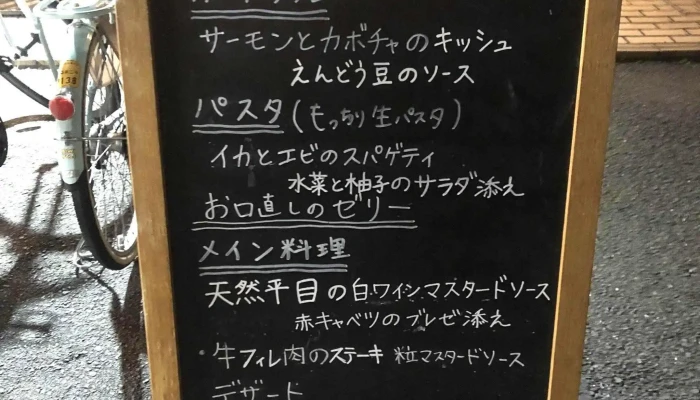 サーモンとカボチャのキッシュ
えんどう豆のソース
パスタ(もっちり生パスタ)
イカとエビのスパゲティ
水菜と柚子のサラダ添え
お口直しのゼリー
メイン料理
天然平目の白ワインマスタードソース
赤キャベツのブレゼ添え
・牛フィレ肉のステーキ 粒マスタードソース
デザート